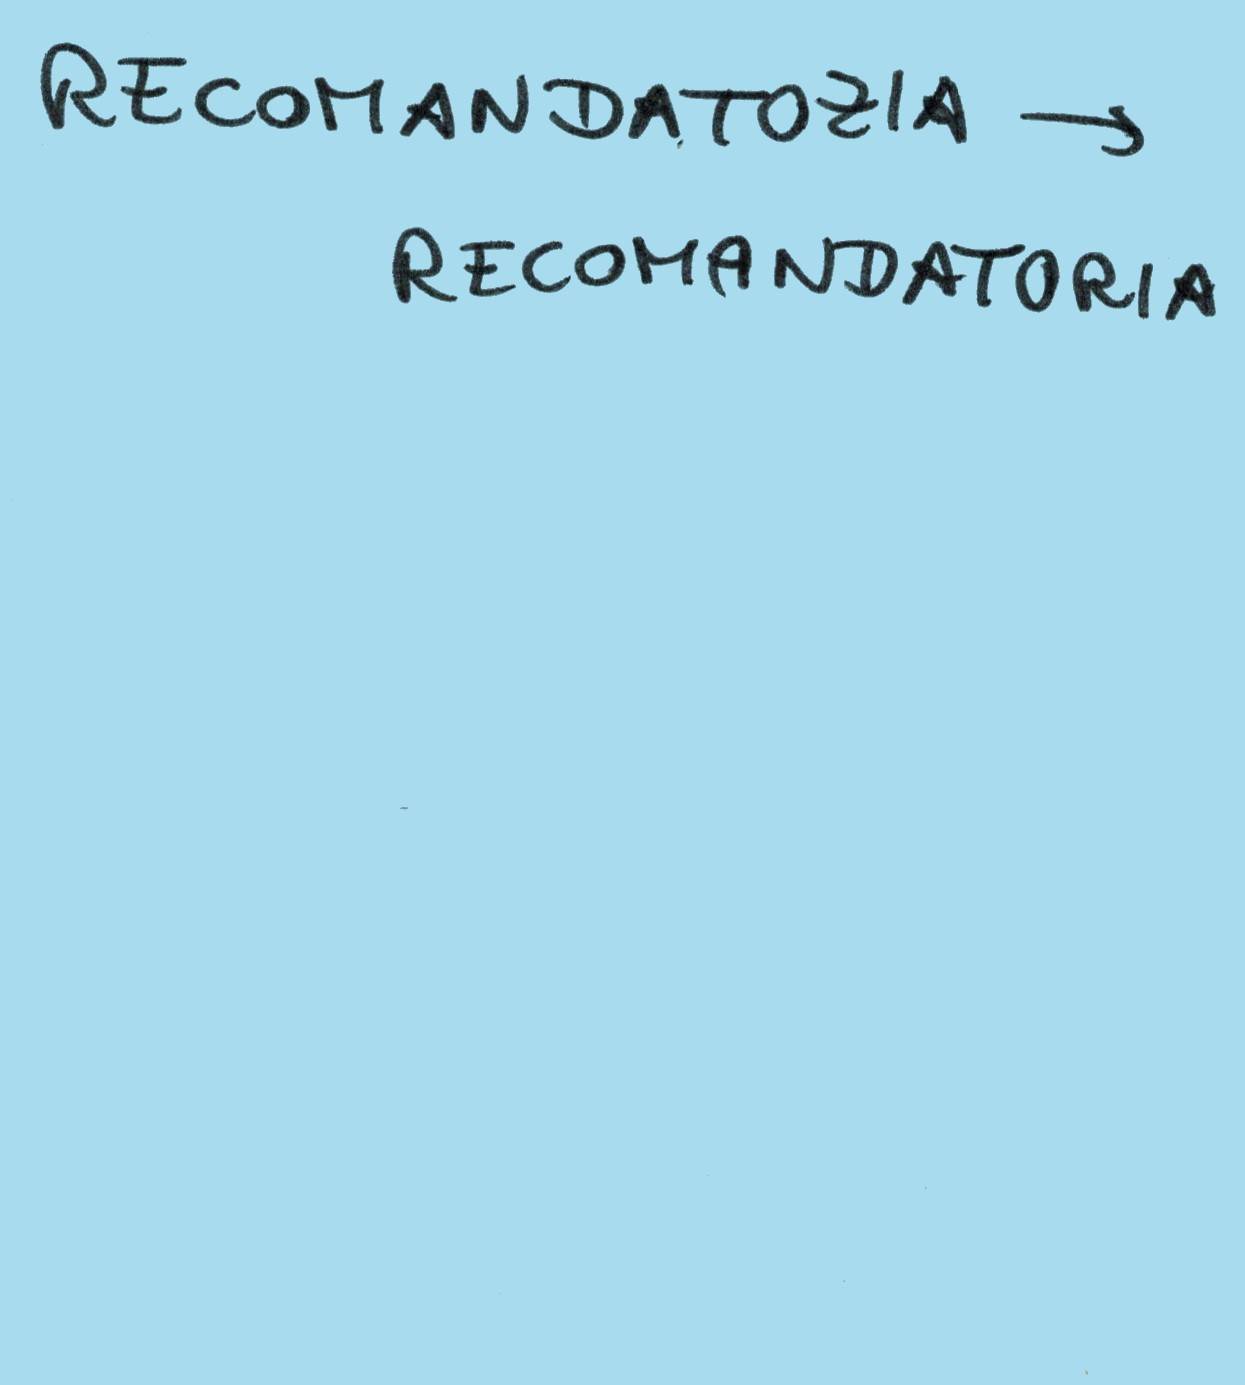 RECOMANDATOZIA →
RECOMANDATORIA